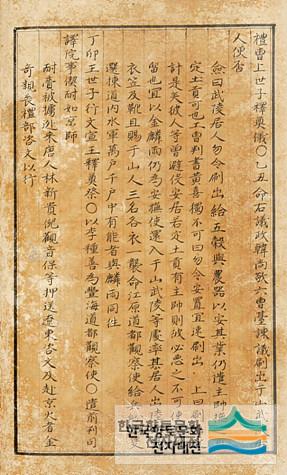 禮曹上世子釋奠儀○乙丑命右議政韓尚敬六曹臺諫議刷出于山武
人便否
僉曰武陵居人勿令刷出給五穀與農器以安其業仍遣主帥
定土貢可也工曹判書黃喜獨不可曰勿令安置宜速刷出上曰刷
計是矣彼人等曾避役安居若定土貢有主帥則彼必惡之不可使
留也宜以金麟雨仍爲安撫使還入于山武陵等處率其居人出陸
衣笠及靴且賜于山人三名各衣一襲命江原道都觀察使給兵
選揀道內水軍萬戶千戶中有能者與麟雨同往
丁卯王世子行文宣王釋奠祭○以李種善爲豐海道都觀察使○遣前判司
譯院事偰耐如京師
耐賫被擄逃來唐人林新貴倪觀音保等押送遼東咨文及赴京火者金
奇賴長禮部咨文以行
한국향토문화
전자대전